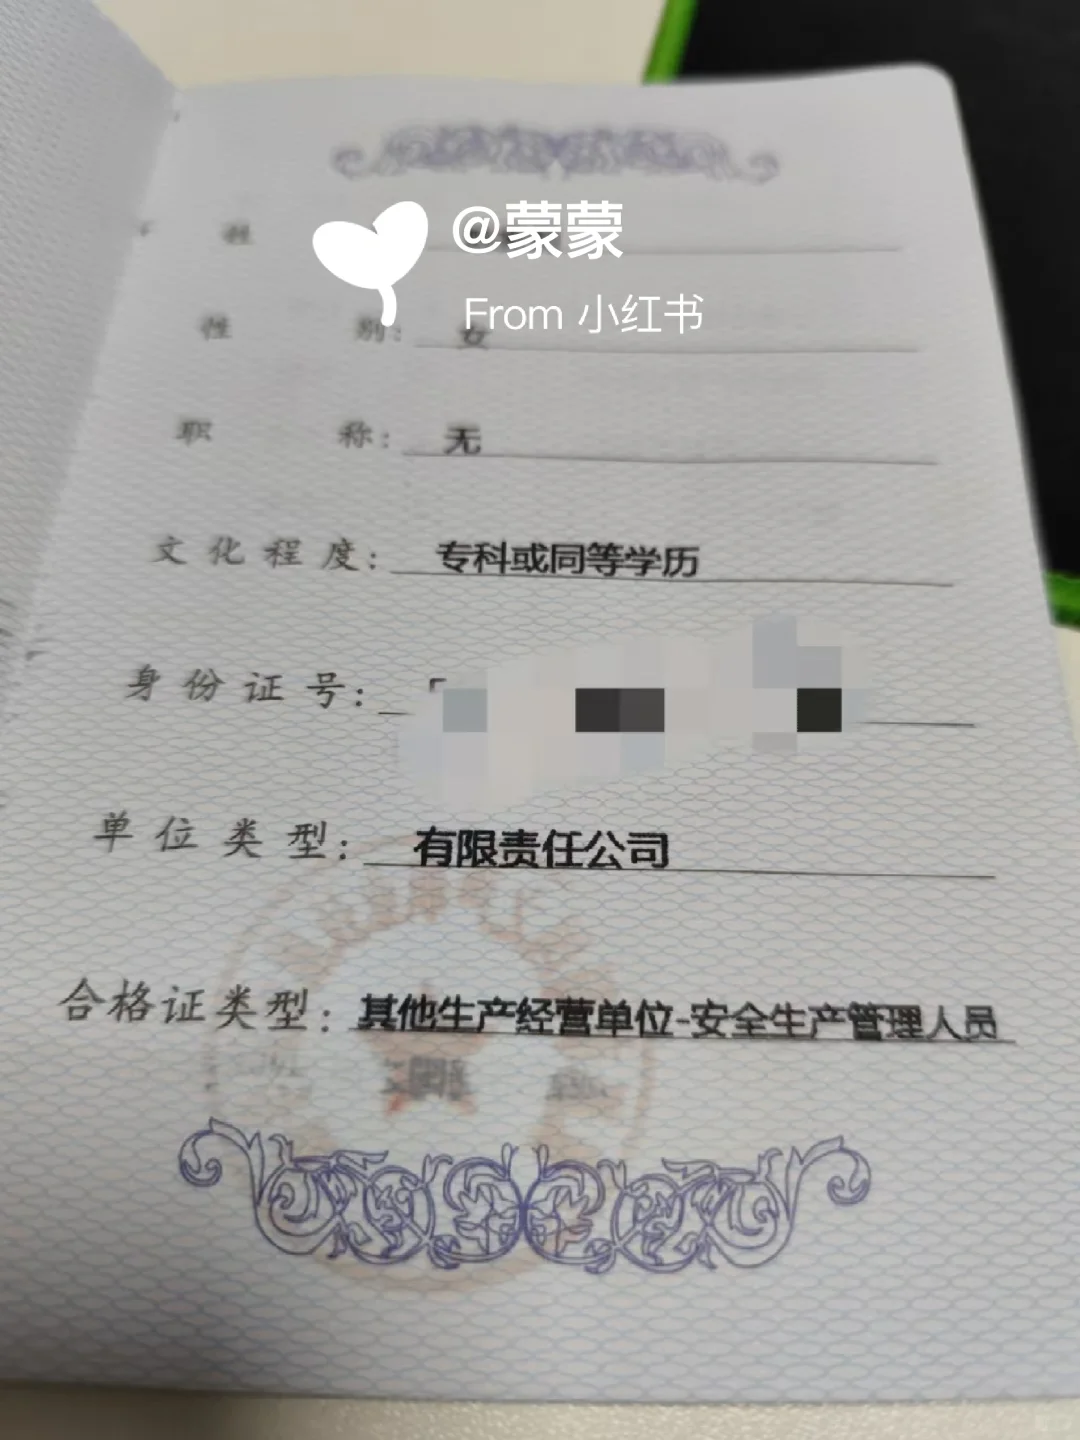 @蒙蒙
From 小红书
姓
性 别: 女
职 称: 无
文化程度: 专科或同等学历
身份证号:
单位类型: 有限责任公司
合格证类型: 其他生产经营单位-安全生产管理人员